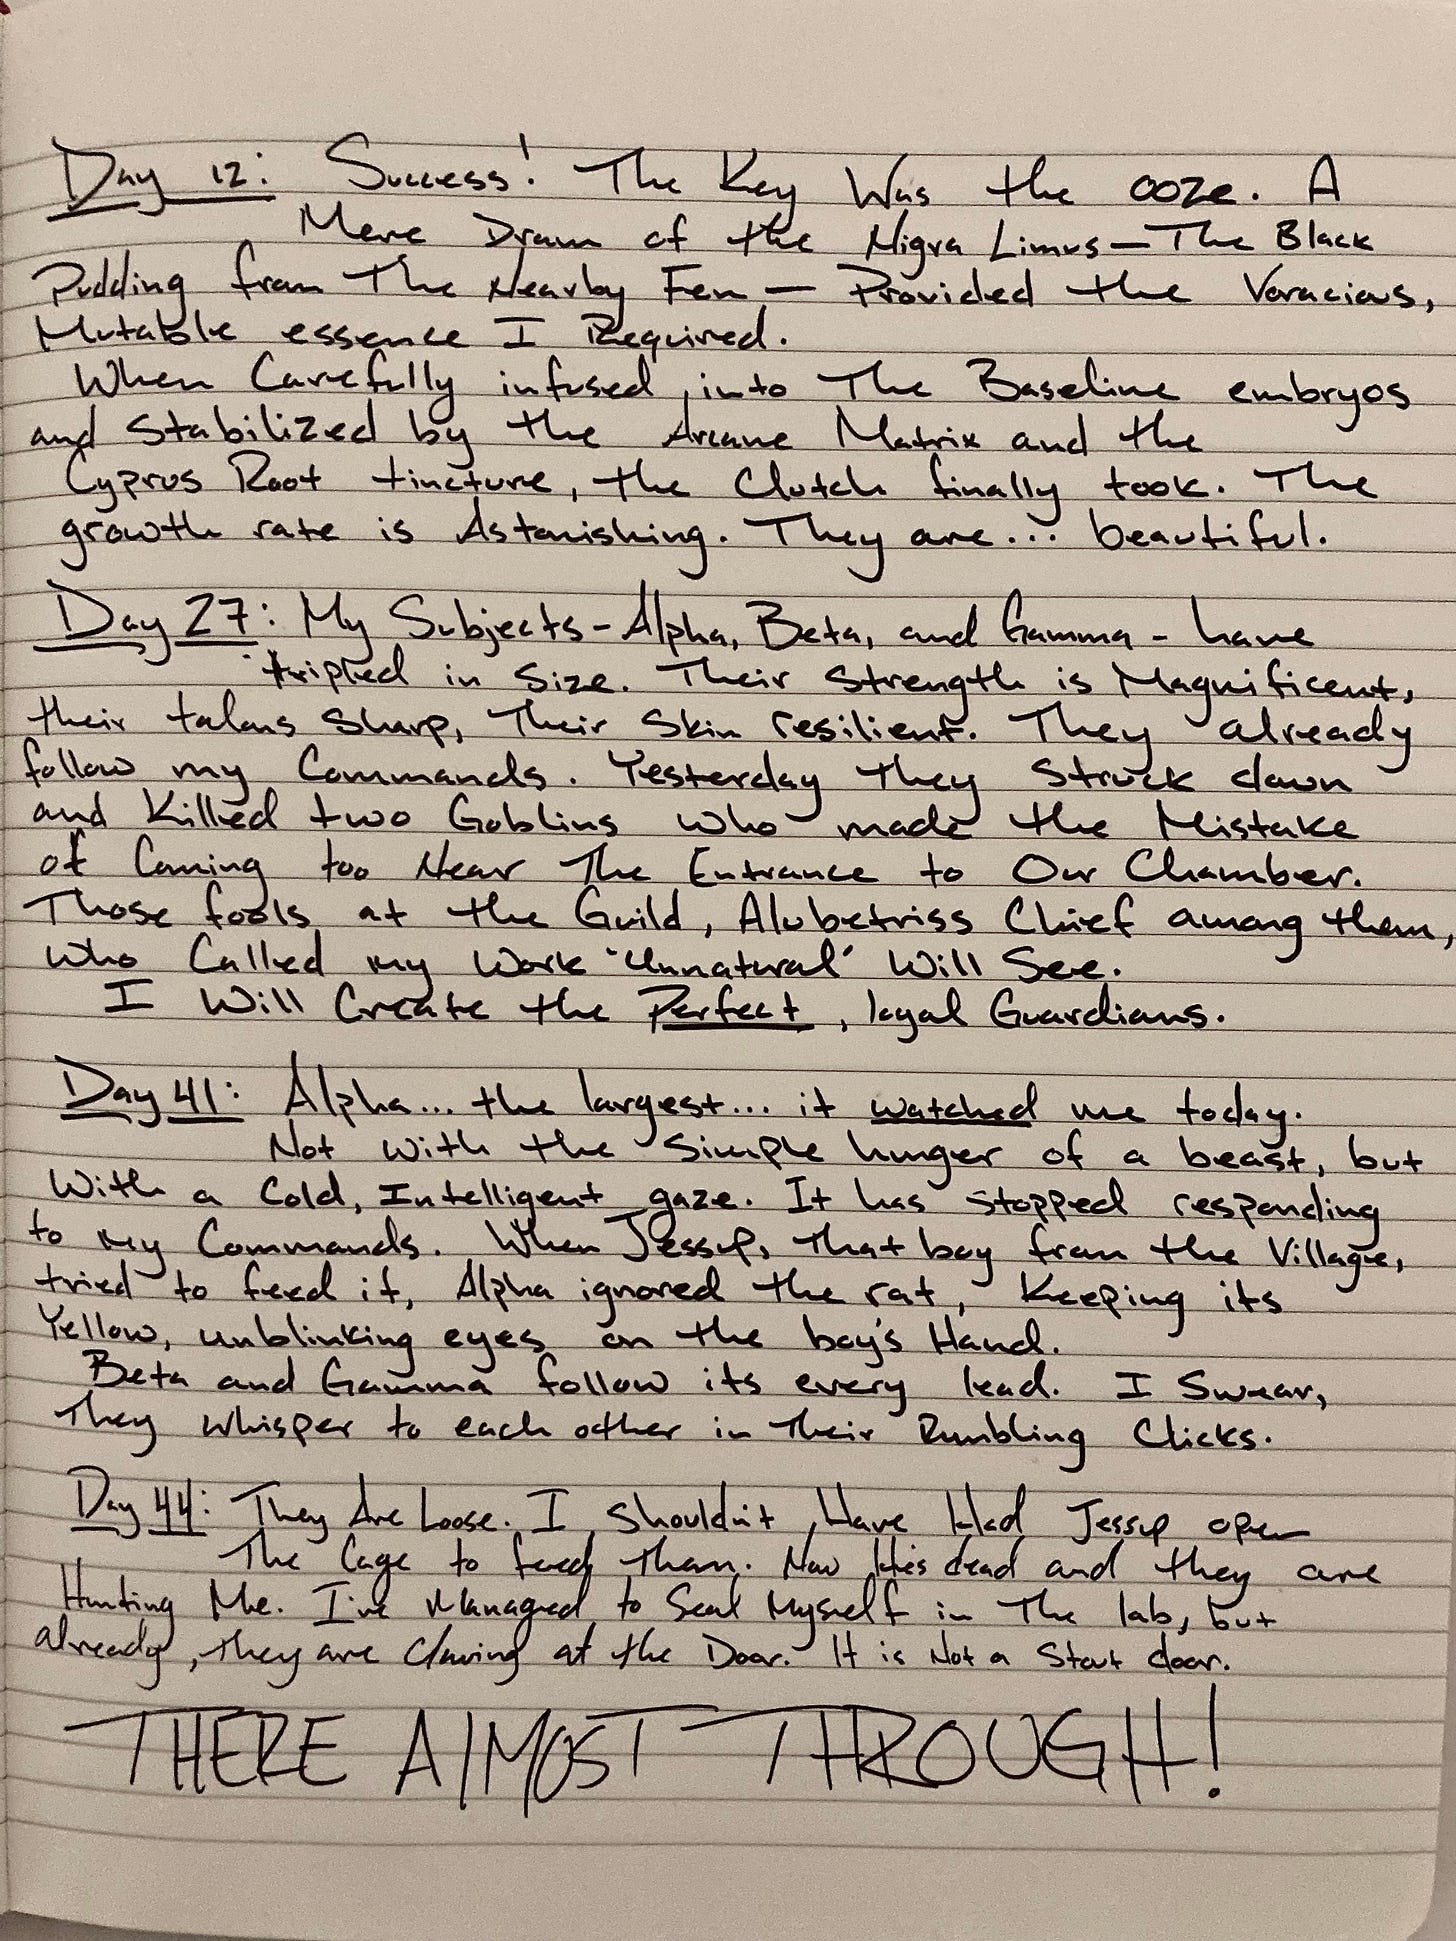 Day 12: Success! The Key Was the ooze. A
Mere Dram of the Nigra Limus — The Black
Pudding from The Nearby Fen — Provided the Voracious,
Mutable essence I Required.
When Carefully infused into The Baseline embryos
and Stabilized by the Arcane Matrix and the
Cyprus Root tincture, the Clutch finally took. The
growth rate is Astonishing. They are... beautiful.
Day 27: My Subjects - Alpha, Beta, and Gamma - have
tripled in Size. Their Strength is Magnificent,
their talons Sharp, Their Skin resilient. They already
follow my Commands. Yesterday They Struck down
and Killed two Goblins who made the Mistake
of Coming too Near The Entrance to Our Chamber.
Those fools at the Guild, Alubetriss Chief among them,
who Called my Work "Unnatural" Will See.
I Will Create the Perfect, loyal Guardians.
Day 41: Alpha... the largest... it watched me today.
Not With the Simple hunger of a beast, but
With a Cold, Intelligent gaze. It has stopped responding
to my Commands. When Jessup, That boy from the Village,
tried to feed it, Alpha ignored the rat, Keeping its
Yellow, unblinking eyes on the boy's Hand.
Beta and Gamma follow its every lead. I Swear,
They whisper to each other in Their Rumbling Clicks.
Day 44: They Are Loose. I shouldn't Have Had Jessup open
The Cage to feed Them. Now He's dead and they are
Hunting Me. I've Managed to Seal Myself in The lab, but
already, they are Clawing at the Door. It is Not a Stout door.
THERE AlMOST THROUGH!